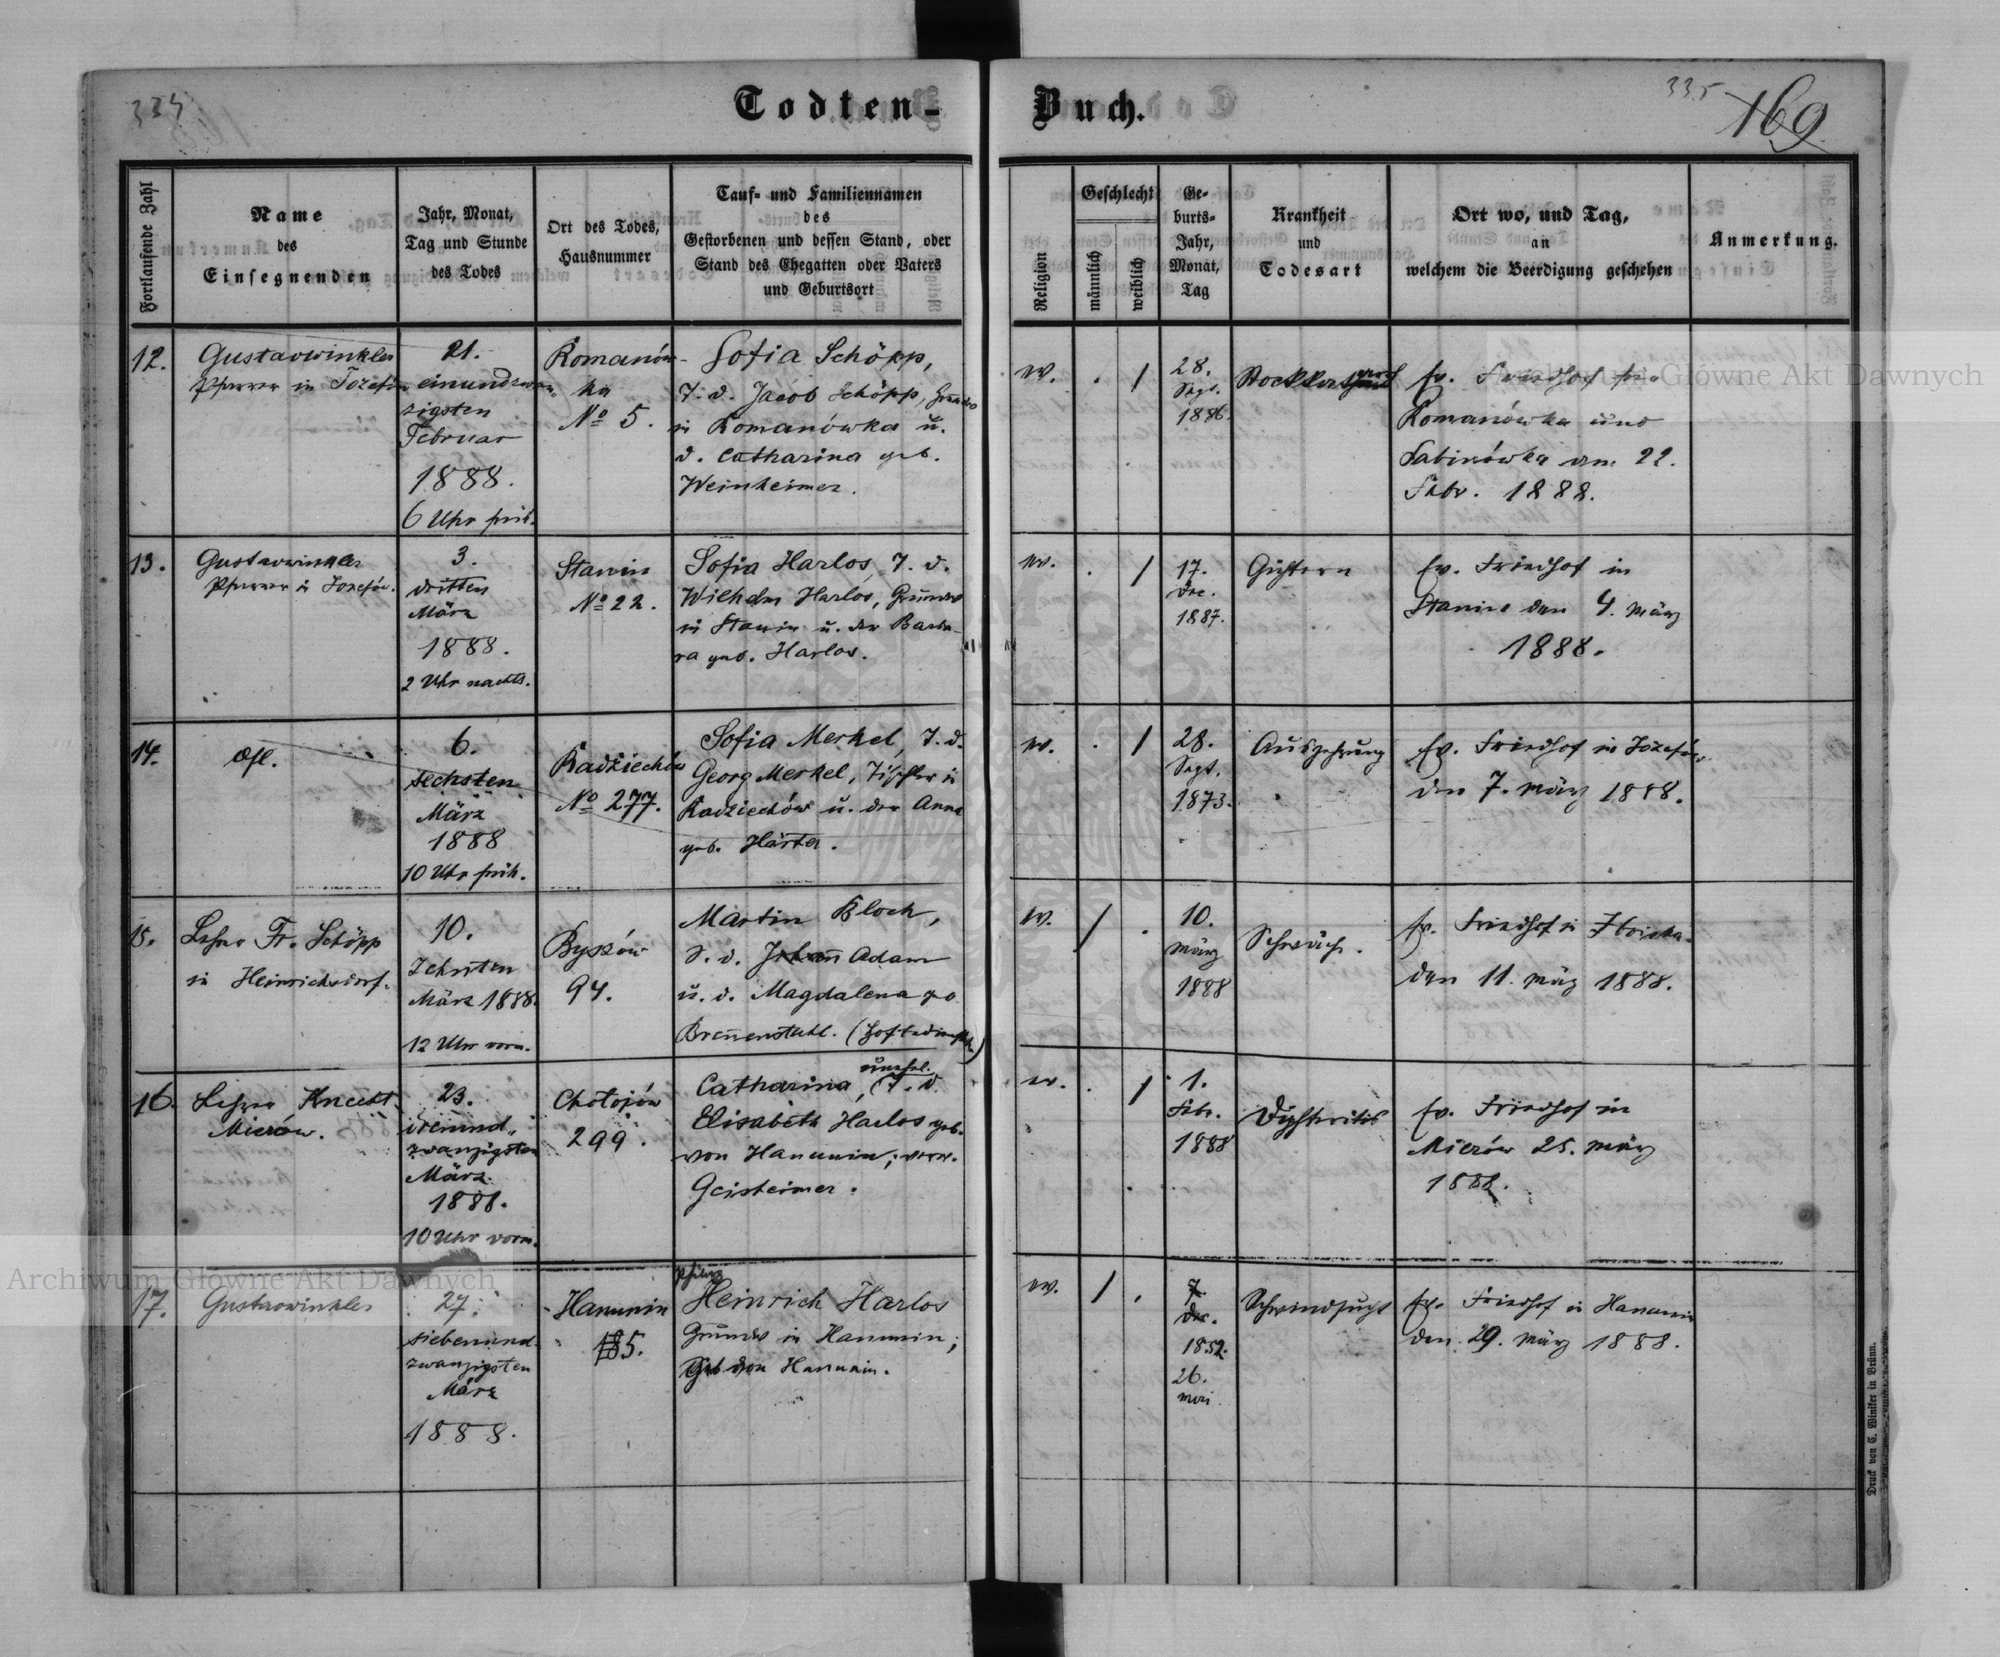 334
Todten-
Buch.
335
169
Fortlaufende Zahl
Name
des
Einsegnenden
Jahr, Monat,
Tag und Stunde
des Todes
Ort des Todes,
Hausnummer
Tauf- und Familiennamen
des
Gestorbenen und dessen Stand, oder
Stand des Ehegatten oder Vaters
und Geburtsort
Religion
Geschlecht
männlich
weiblich
Ge-
burts-
Jahr,
Monat,
Tag
Krankheit
und
Todesart
Ort wo, und Tag,
an
welchem die Beerdigung geschehen
Anmerkung.
12.
Gustav Winkler
Pfarrer in Josefów
21.
einundzwan-
zigsten
Februar
1888.
6 Uhr früh.
Romanów-
ka
No 5.
Sofia Schöpp,
T. d. Jacob Schöpp, Grundw
in Romanówka u.
d. Catharina geb.
Weinheimer.
ev.
28.
Sept.
1886.
Ev. Friedhof in
Romanówka und
Sabinówka am 22.
Febr. 1888.
13.
Gustav Winkler
Pfarrer in Josefów.
3.
dritten
März
1888.
2 Uhr nachts.
Stanin
No 22.
Sofia Harlos, T. d.
Wilhelm Harlos, Grundw
in Stanin u. der Barba-
ra geb. Harlos.
ev.
17.
Dec.
1887.
Ev. Friedhof in
Stanin den 4. März
1888.
14.
6.
sechsten
März
1888
10 Uhr früh.
Radziechów
No 277.
Sofia Merkel, T. d.
Georg Merkel, Tischler in
Radziechów u. der Anna
geb. Härter.
ev.
28.
Sept.
1873.
Auszehrung
Ev. Friedhof in Józefów
den 7. März 1888.
15.
Lehrer Fr. Schöpp
in Heinrichsdorf.
10.
Zehnten
März 1888.
12 Uhr vorm.
Byszów
94.
Martin Bloch,
S. d. Johann Adam
u. d. Magdalena geb
Brennenstuhl.
ev.
10.
März
1888
Schwäche.
Ev. Friedhof in
den 11. März 1888.
16.
Lehrer Knecht
Mierów.
23.
dreiund-
zwanzigsten
März
1888.
10 Uhr vorm.
Chołojów
299.
unehel.
Catharina, T. d
Elisabeth Harlos geb.
von Hanunin, verw.
Geisheimer.
ev.
1.
Febr.
1888
Diphteritis
Ev. Friedhof in
Mierów 25. März
1888.
17.
Gustav Winkler
27.
siebenund-
zwanzigsten
März
1888.
Hanunin
5.
Heinrich Harlos
Grundw in Hanunin;
Geb von Hanunin.
ev.
Dec.
1852.
26.
Mai
Schwindsucht
Ev. Friedhof in Hanunin
den 29. März 1888.
Druck von C. Winiker in Brünn.
Archiwum Główne Akt Dawnych
Archiwum Główne Akt Dawnych